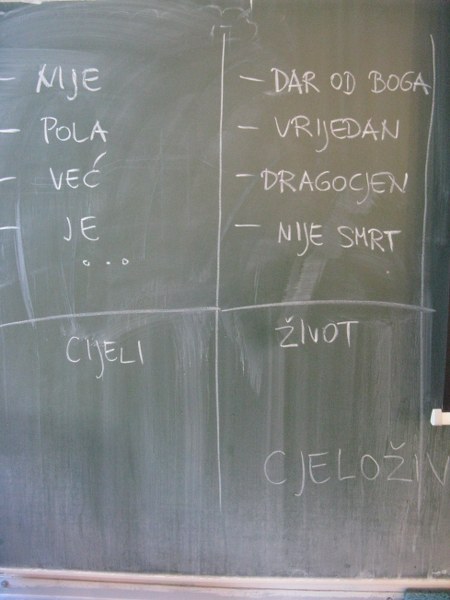 - NIJE
- POLA
- VEĆ
- JE
...
CIJELI
- DAR OD BOGA
- VRIJEDAN
- DRAGOCJEN
- NIJE SMRT
ŽIVOT
CJELOŽIV